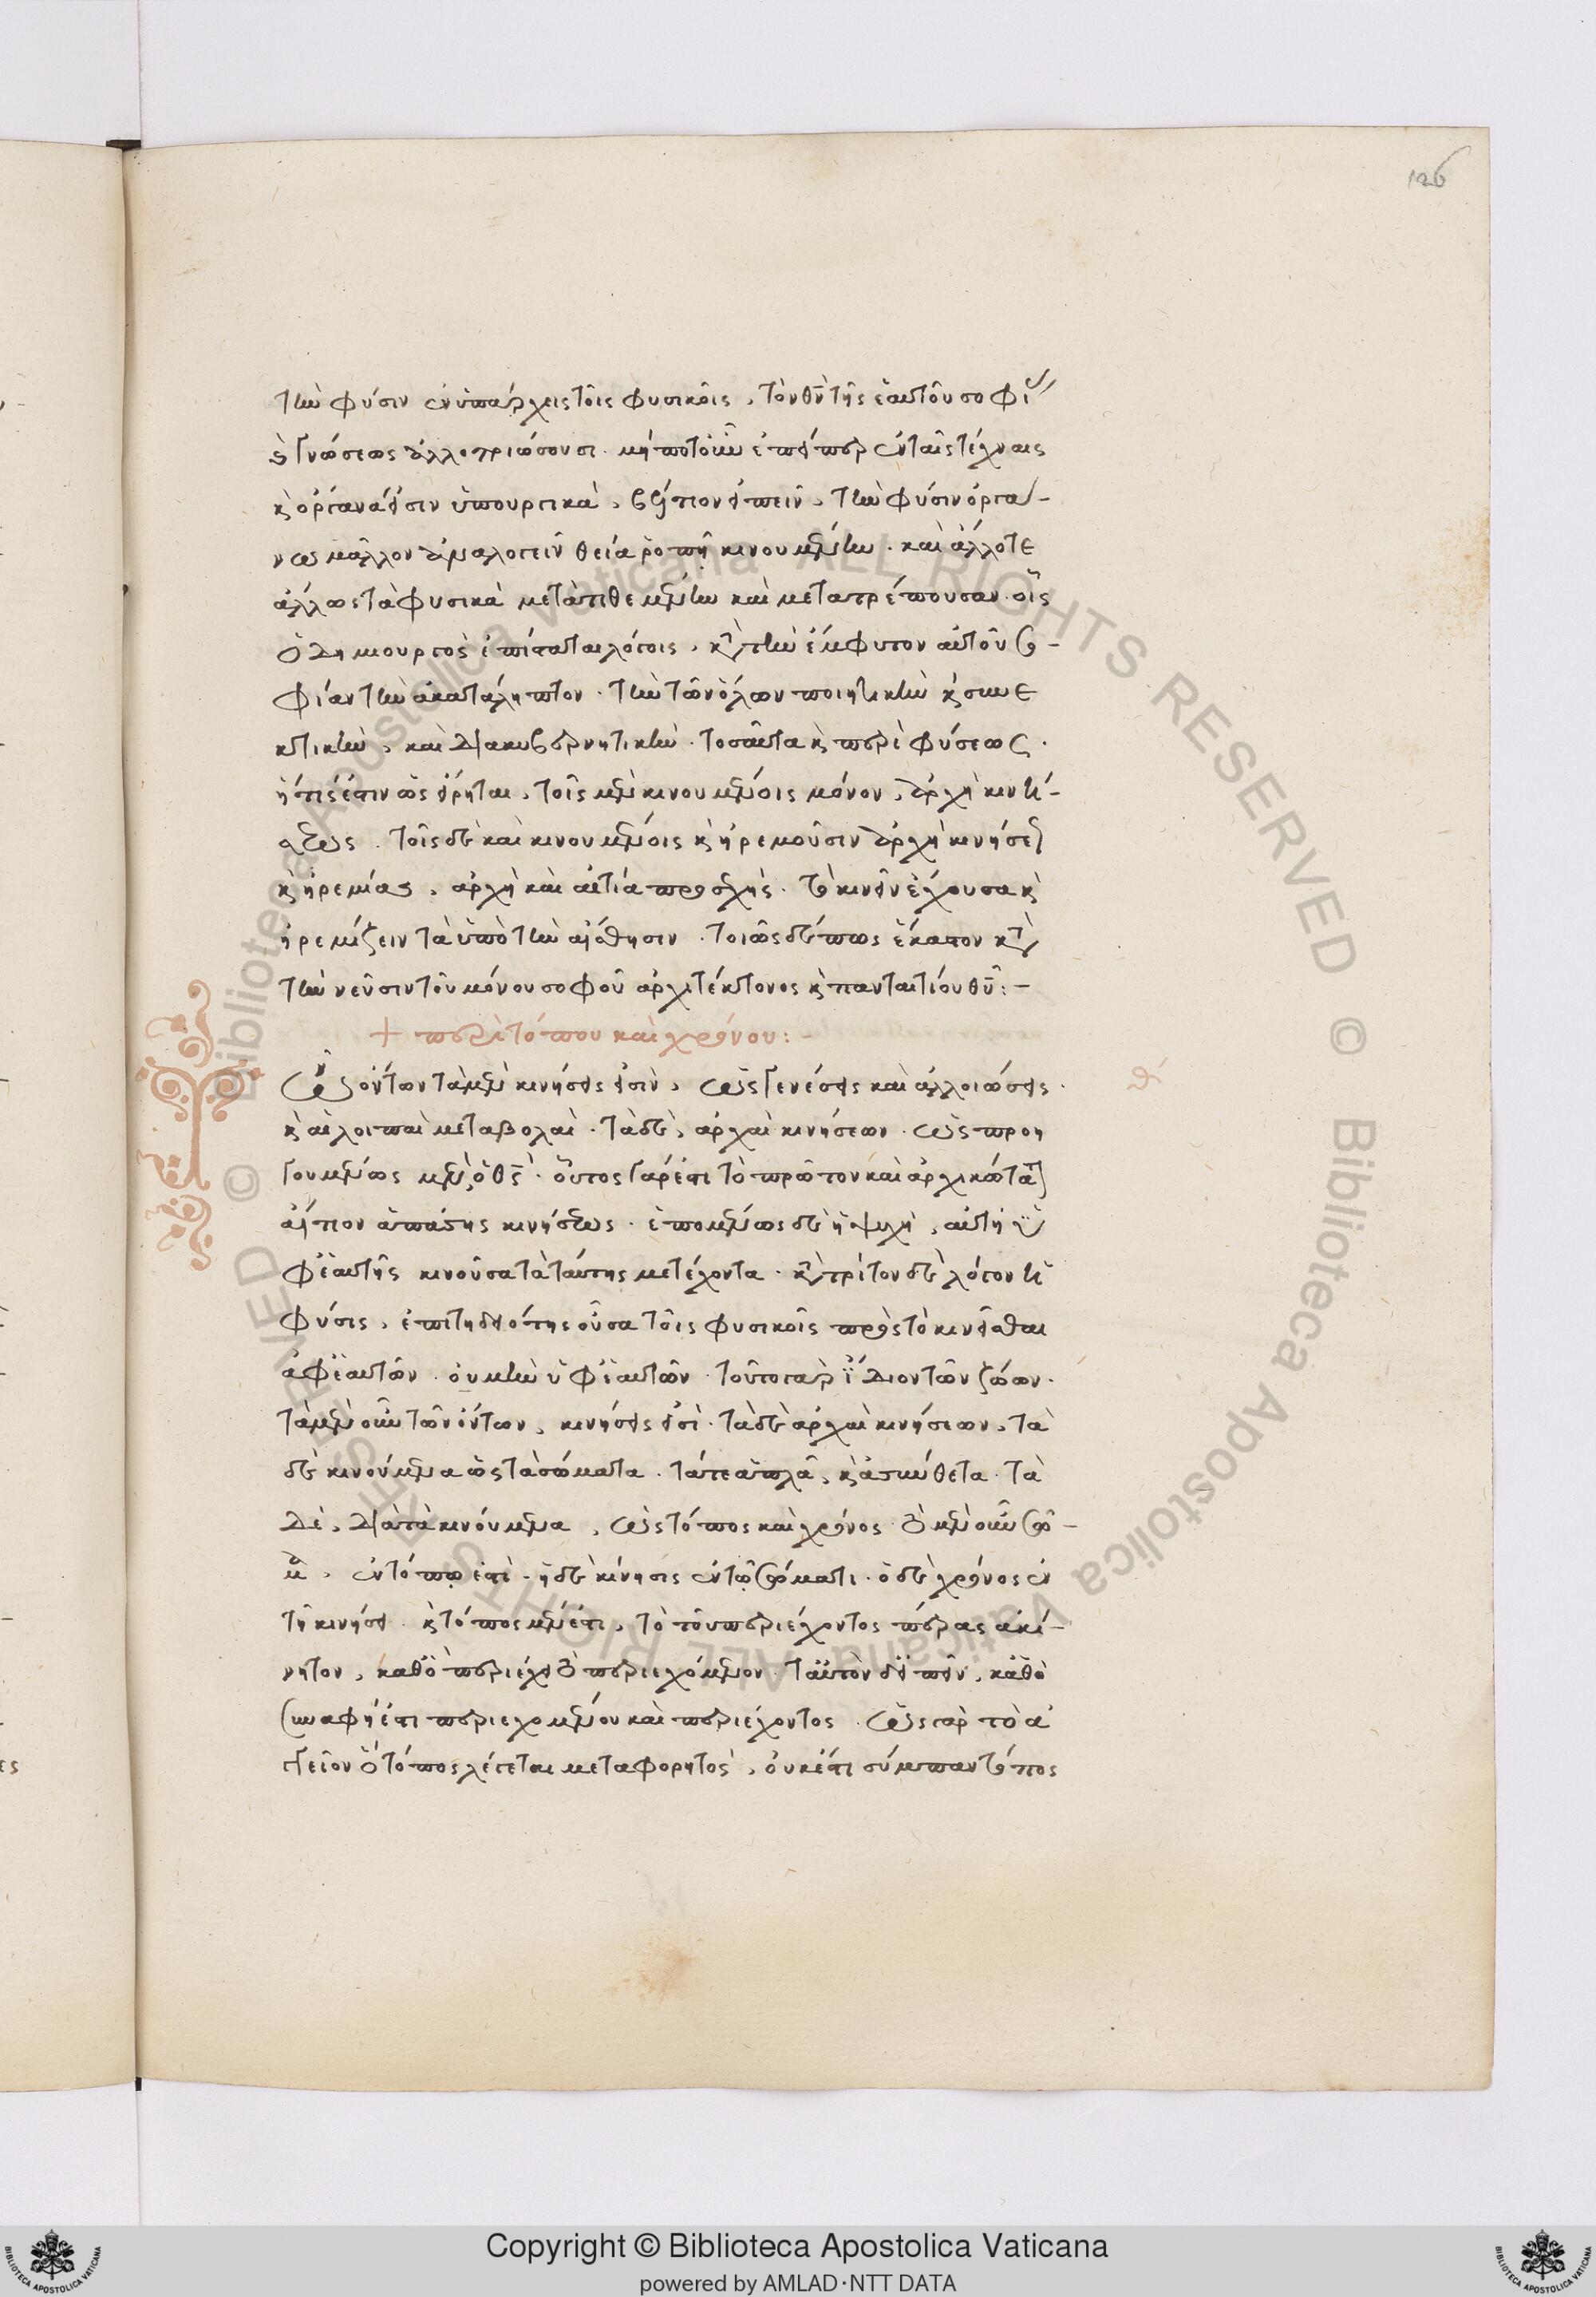 126
τὴν φύσιν ἐνυπάρχειν τοῖς φυσικοῖς, τὸν θν τῆς ἑαυτοῦ σοφί
γνώσεως ἀλλοτριώσουσι. μήποτ' οὖν ἐπείπερ ἐν ταῖς τέχναις
κ ὄργανά εἰσιν ὑπουργικά, βέλτιον εἰπεῖν, τὴν φύσιν ὄργα-
νῳ μᾶλλον ἀναλογεῖν θεία ῥοπῇ κινουμένην. καὶ ἄλλοτε
ἄλλως τὰ φυσικὰ μετατιθεμένην καὶ μετατρέπουσαν. οἷς
ὁ δημιουργὸς ἐπίσταται λόγοις, κτ τὴν ἔμφυτον αὐτοῦ σο-
φίαν τὴν ἀκατάληπτον. τὴν τῶν ὅλων ποιητικὴν κ συνε
κτικὴν, καὶ διακυβερνητικήν. τοσαῦτα κ περὶ φύσεως.
ἥτις ἐστιν ὡς εἴρηται, τοῖς μὲν κινουμένοις μόνον, ἀρχὴ κινή-
σεως. τοῖς δὲ καὶ κινουμένοις κ ἠρεμοῦσιν ἀρχὴ κινήσε
κ ἠρεμίας, ἀρχὴ καὶ αἰτία προσεχής. τὸ κινεῖν ἔχουσα κ
ἠρεμίζειν τὰ ὑπὸ τὴν αἴσθησιν. τοιῶς δέ πως ἕκαστον κτ
τὴν νεῦσιν τοῦ μόνου σοφοῦ ἀρχιτέκτονος κ πανταιτίου θυ:-
+ περὶ τόπου καὶ χρόνου:-
Τῶν ὄντων τὰ μὲν κινήσεις εἰσὶν, ὡς γενέσεις καὶ ἀλλοιώσεις.
θ'
κ αἱ λοιπαὶ μεταβολαί. τὰ δὲ, ἀρχαὶ κινήσεων. ὡς προη
γουμένως μὲν, ὁ θς. οὗτος γάρ ἐστι τὸ πρῶτον καὶ ἀρχικώτατ
αἴτιον ἁπάσης κινήσεως. ἑπομένως δὲ ἡ ψυχὴ, αὐτὴ ὑ
φ' ἑαυτῆς κινοῦσα τὰ ταύτης μετέχοντα. κτ τρίτον δὲ λόγον ἡ
φύσις, ἐπιτηδειότης οὖσα τοῖς φυσικοῖς πρὸς τὸ κινεῖσθαι
ἀφ' ἑαυτῶν. οὐ μὴν ὑφ' ἑαυτῶν. τοῦτο γὰρ ἴδιον τῶν ζώων.
τὰ μὲν οὖν τῶν ὄντων, κινήσεις εἰσί. τὰ δὲ ἀρχαὶ κινήσεων, τὰ
δὲ κινούμενα ὡς τὰ σώματα. τά τε ἁπλᾶ, κ ἀσύνθετα. τὰ
δὲ, διὰ τὰ κινούμενα, ὡς τόπος καὶ χρόνος. τὸ μὲν οὖν σῶ-
μα, ἐν τόπῳ ἐστὶ. ἡ δὲ κίνησις ἐν τῷ σώματι. ὁ δὲ χρόνος ἐν
τῇ κινήσει. κ τόπος μέν ἐστι, τὸ τοῦ περιέχοντος πέρας ἀκί-
νητον, καθὸ περιέχει τὸ περιεχόμενον. ταὐτὸν δ' εἰπεῖν, καθὸ
συναφή ἐστι περιεχομένου καὶ περιέχοντος. ὡς γὰρ τὸ ἀ
γγεῖον ὁ τόπος λέγεται μεταφορητὸς, οὐκ ἔστι σύμπαν τόπος
Copyright © Biblioteca Apostolica Vaticana
powered by AMLAD·NTT DATA